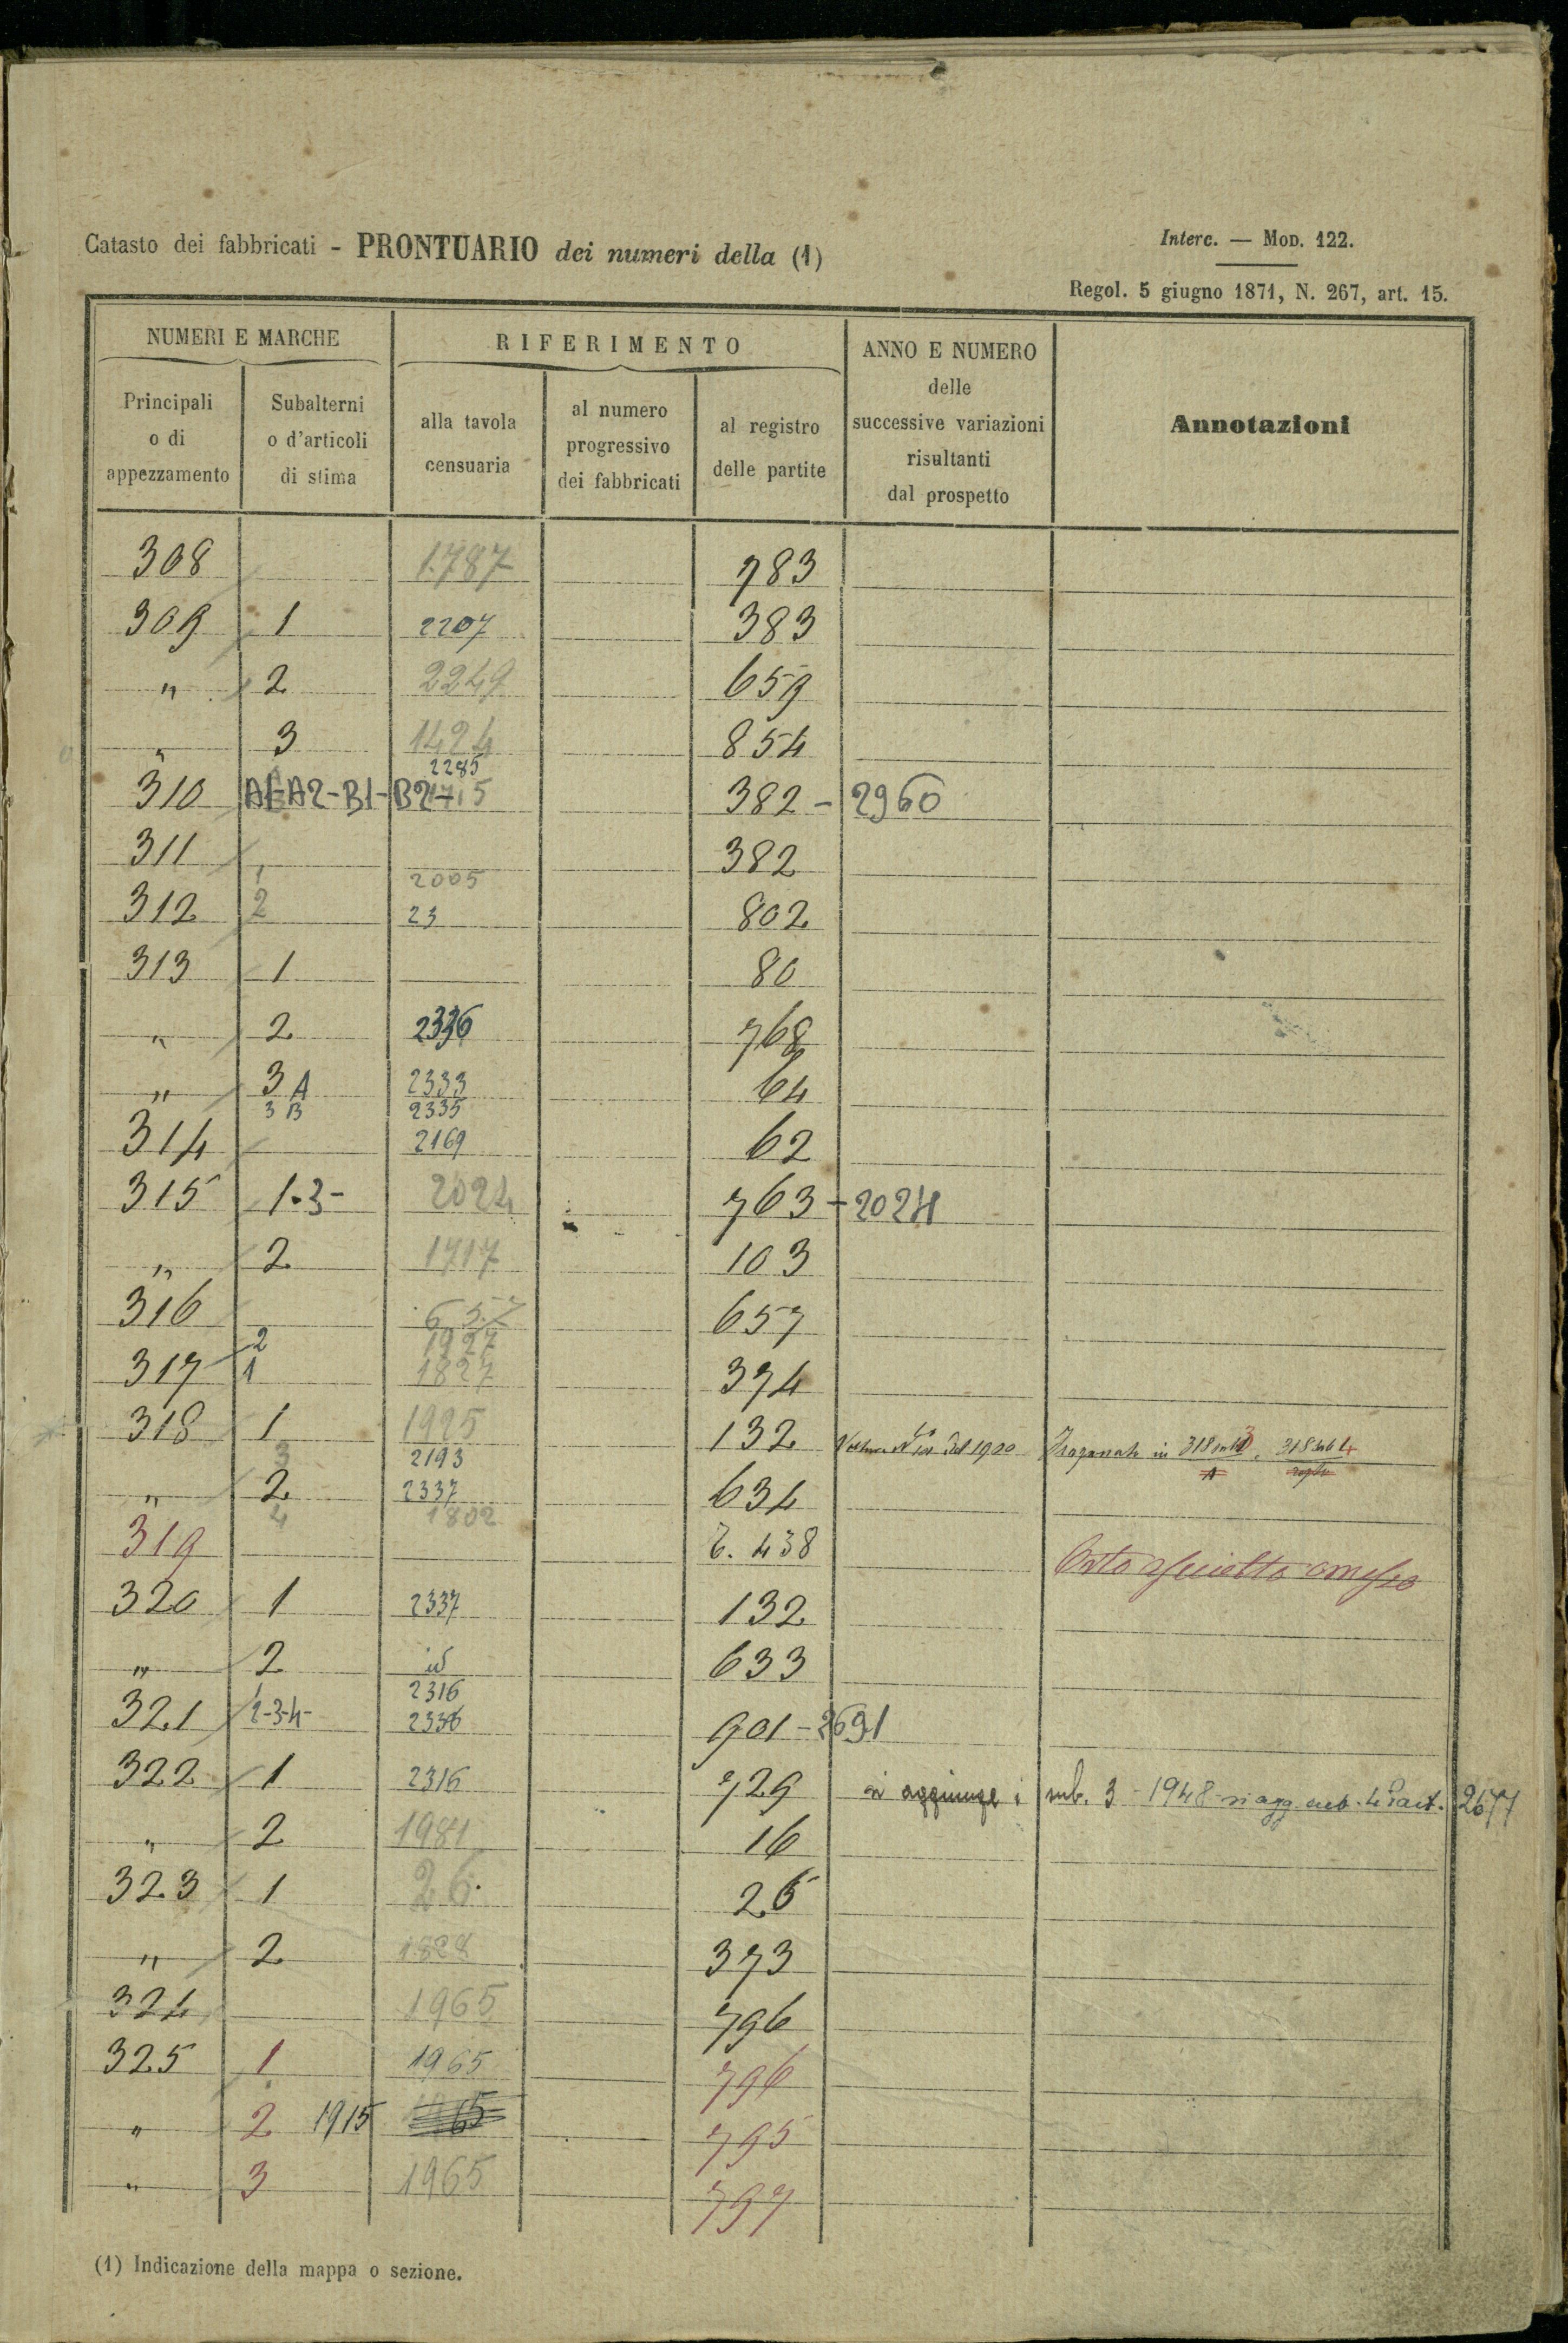 Catasto dei fabbricati - PRONTUARIO dei numeri della (1)
Interc. — MOD. 122.
Regol. 5 giugno 1871, N. 267, art. 15.
NUMERI E MARCHE RIFERIMENTO ANNO E NUMERO delle successive variazioni risultanti dal prospetto Annotazioni
Principali o di appezzamento Subalterni o d'articoli di stima alla tavola censuaria al numero progressivo dei fabbricati al registro delle partite
308 1787 783
309 1 2207 383
" 2 2249 659
" 3 1424 854
2285
310 A1-A2-B1-B2- 382 - 2960
311 382
1 2005
312 2 23 802
313 1 80
" 2 2336 768
" 3 A 2333 64
3 B 2335
314 2169 62
315 1.3- 2024 763 - 2024
" 2 1717 103
316 657 657
2 1927
317 1 1827 374
318 1 1925 132 del 1900 in 318
3 2193
" 2 2337 634
4 1802
319 438 Orto
320 1 2337 132
" 2 id 633
2316
321 2-3-4- 2336 901 - 2691
322 1 2316 729 si aggiunge i sub. 3 - 1948 - si agg. sub. 4 Part. 2677
" 2 1981 16
323 1 26. 26
" 2 1828 373
324 1965 796
325 1 1965 796
" 2 1915 795
" 3 1965 797
(1) Indicazione della mappa o sezione.